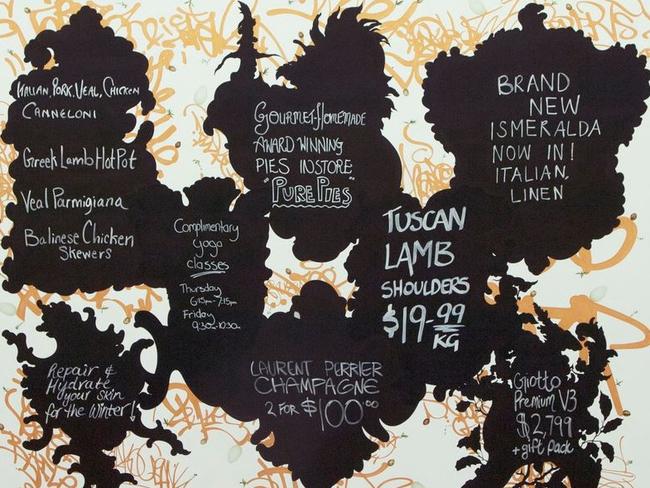 Italian, Pork, Veal, Chicken
Canneloni
Greek Lamb Hot Pot
Veal Parmigiana
Balinese Chicken
Skewers
Gourmet-Homemade
AWARD WINNING
PIES INSTORE
"PURE PIES"
BRAND
NEW
ISMERALDA
NOW IN!
ITALIAN,
LINEN
Complimentary
Yoga
classes
Thursday
6:15am-7:15am
Friday
9:30am-10:30am
TUSCAN
LAMB
SHOULDERS
$19-99
KG
Repair &
Hydrate
your skin
for the Winter!
LAURENT PERRIER
CHAMPAGNE
2 FOR $100.00
Giotto
Premium V3
$2,799
+ gift pack